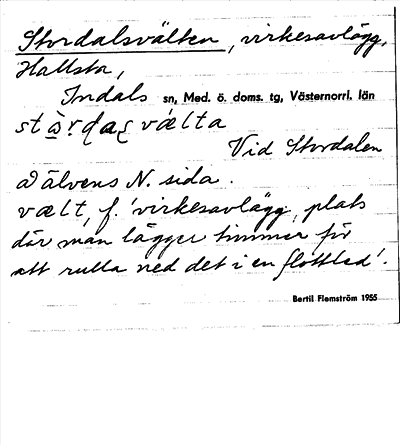 Stordalsvälten, virkesavlägg,
Hallsta,
Indals sn, Med. ö. doms. tg, Västernorrl. län
vælta
Vid Stordalen
älvens N. sida.
vælt, f. 'virkesavlägg, plats
där man lägger timmer för
att rulla ned det i en flottled'.
Bertil Flemström 1955